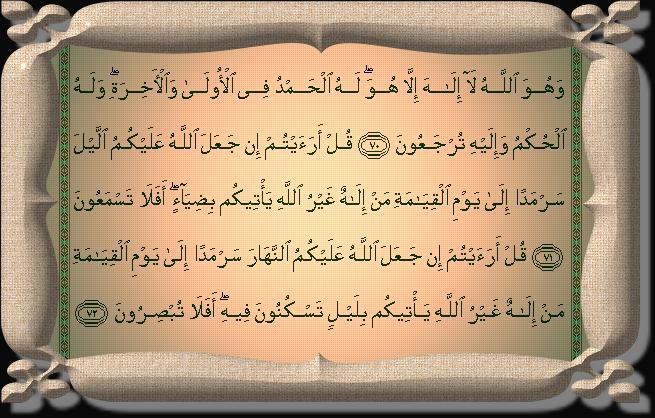 وَهُوَ ٱللَّهُ لَآ إِلَـٰهَ إِلَّا هُوَ ۖ لَهُ ٱلْحَمْدُ فِى ٱلْأُولَىٰ وَٱلْأَخِرَةِ ۖ وَلَهُ
ٱلْحُكْمُ وَإِلَيْهِ تُرْجَعُونَ ٧٠ قُلْ أَرَءَيْتُمْ إِن جَعَلَ ٱللَّهُ عَلَيْكُمُ ٱلَّيْلَ
سَرْمَدًا إِلَىٰ يَوْمِ ٱلْقِيَـٰمَةِ مَنْ إِلَـٰهٌ غَيْرُ ٱللَّهِ يَأْتِيكُم بِضِيَآءٍ ۖ أَفَلَا تَسْمَعُونَ
٧١ قُلْ أَرَءَيْتُمْ إِن جَعَلَ ٱللَّهُ عَلَيْكُمُ ٱلنَّهَارَ سَرْمَدًا إِلَىٰ يَوْمِ ٱلْقِيَـٰمَةِ
مَنْ إِلَـٰهٌ غَيْرُ ٱللَّهِ يَأْتِيكُم بِلَيْلٍ تَسْكُنُونَ فِيهِ ۖ أَفَلَا تُبْصِرُونَ ٧٢